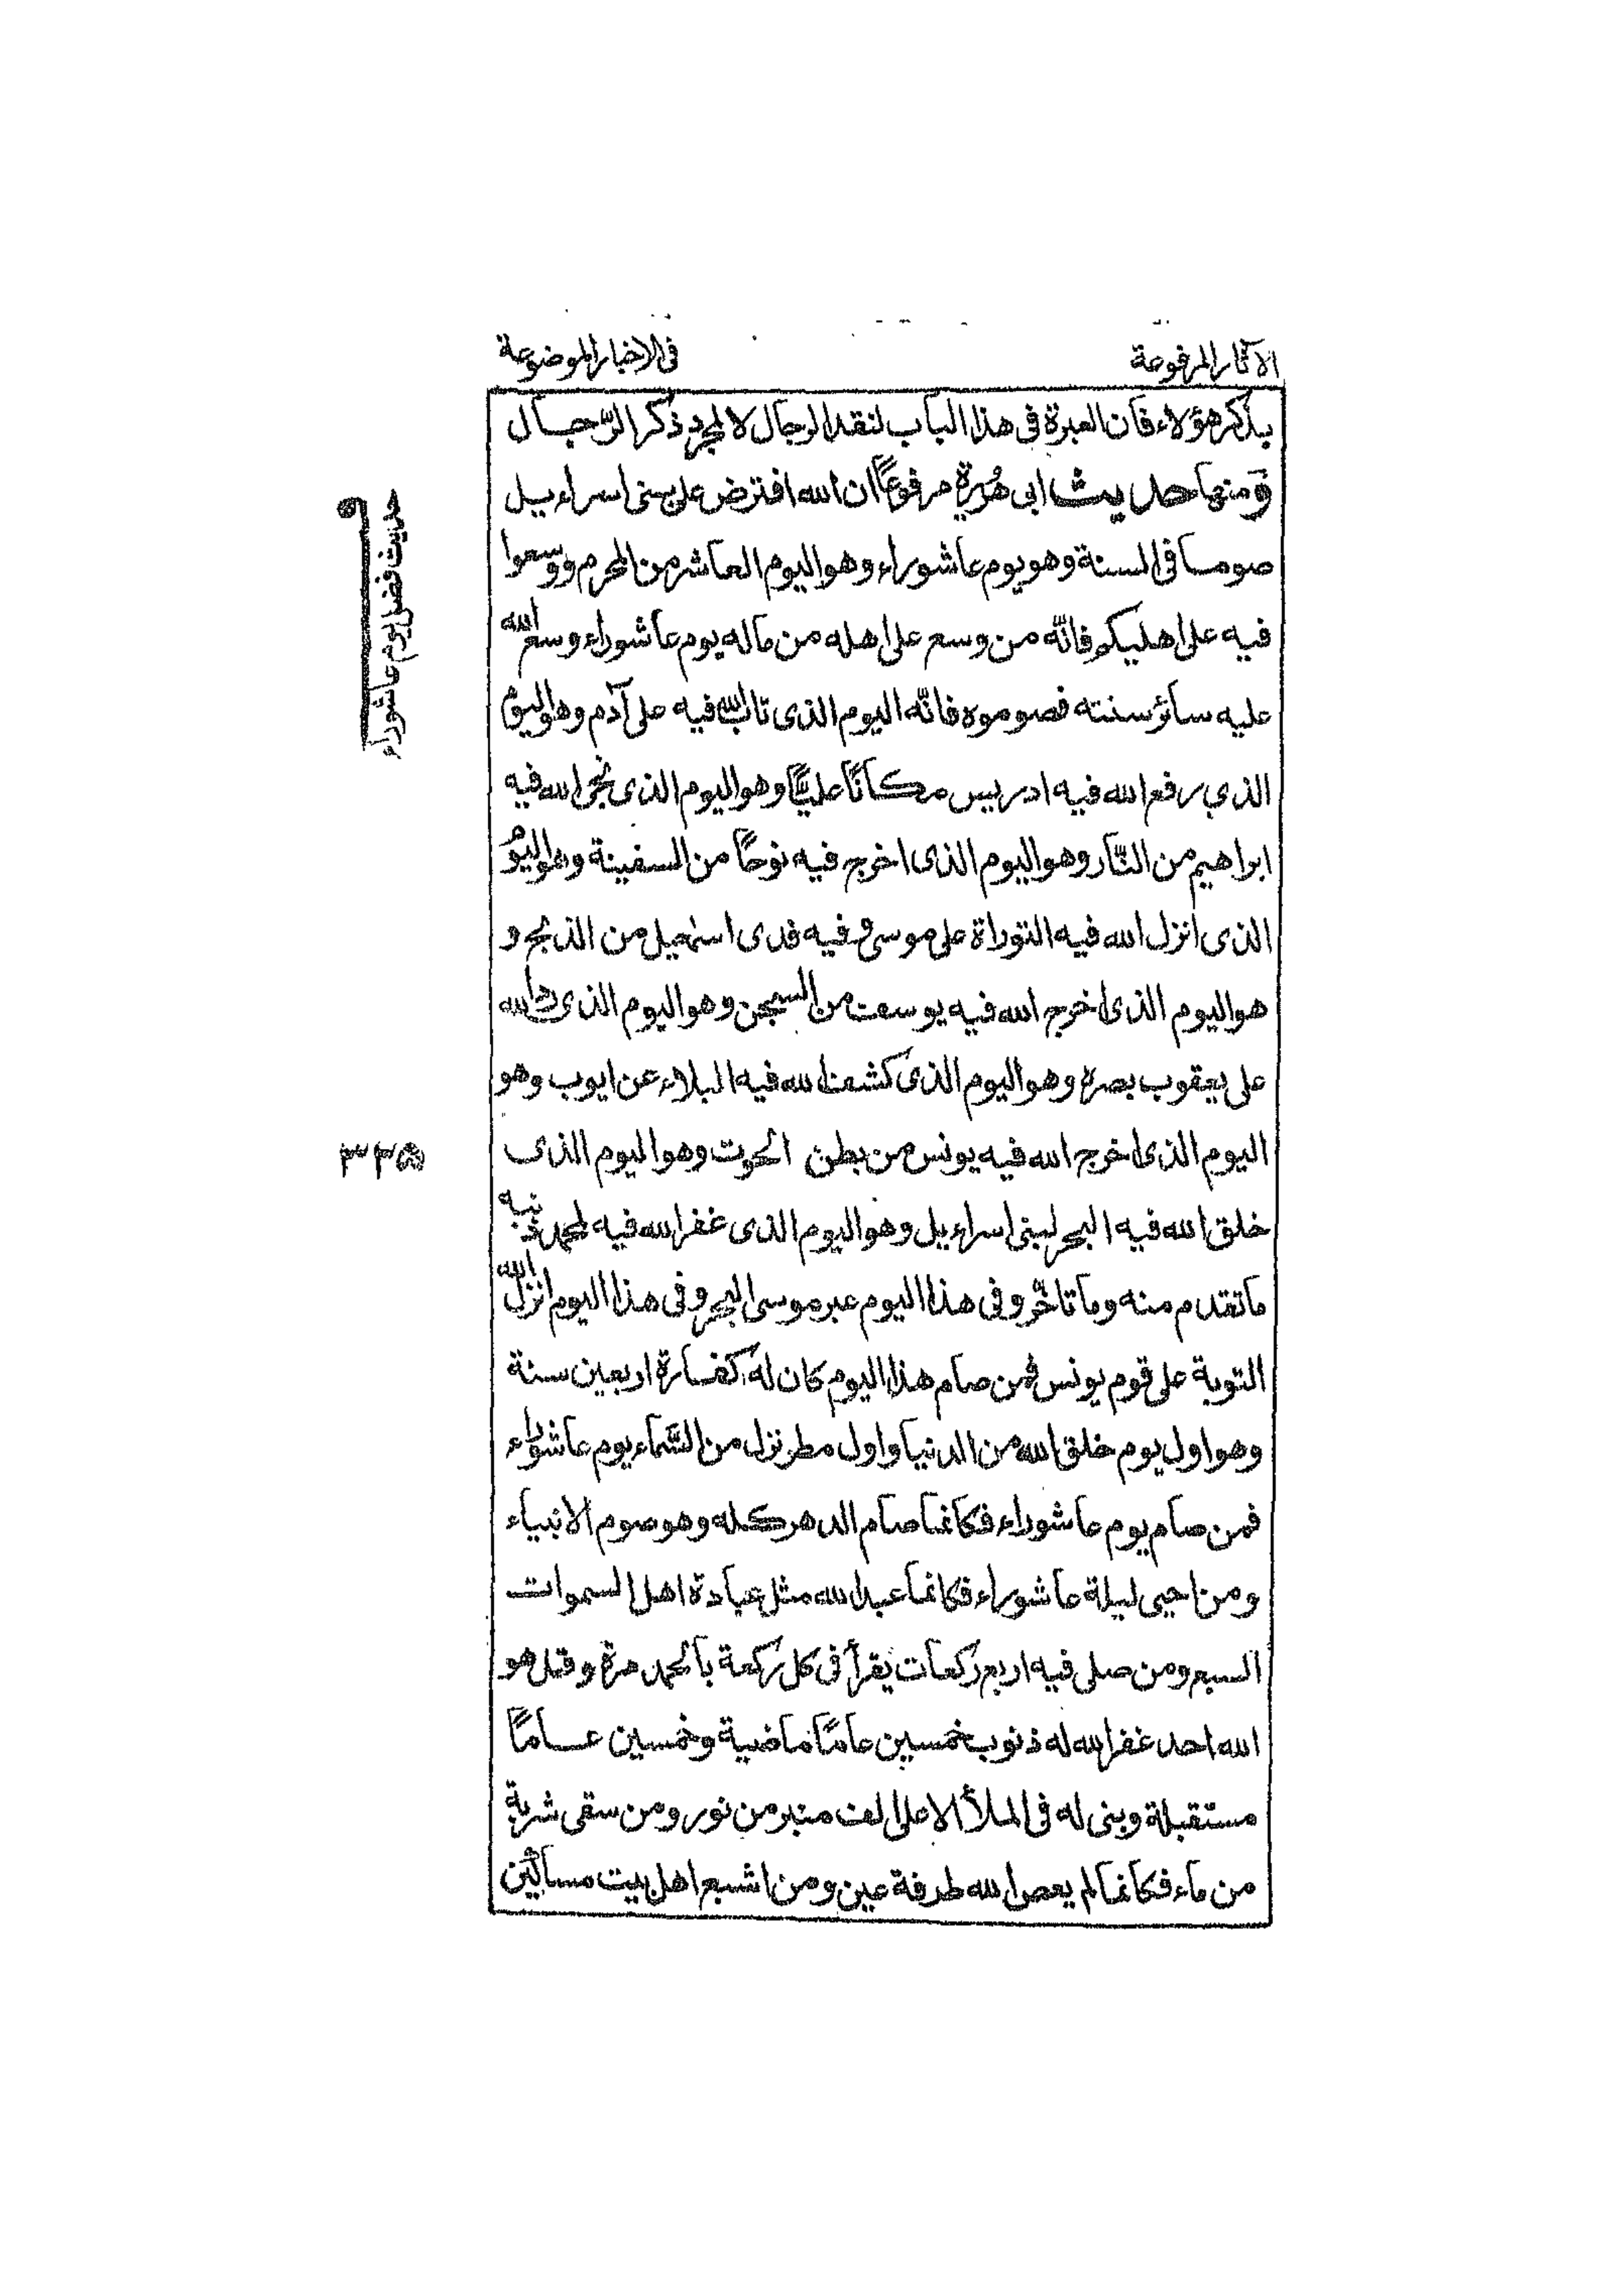 الآثار المرفوعة
فى الاخبار الموضوعة
بذكر هؤلاء فان العبرة فى هذا الباب لنقد الرجال لا لمجرد ذكر الرّجال
وَمنها حديث ابى هُريرة مرفوعًا ان الله افترض على بنى اسراءيل
صوما فى السنة وهو يوم عاشوراء وهو اليوم العاشر من المحرم ووسعوا
فيه على اهليكم فانّه من وسع على اهله من ماله يوم عاشوراء وسع الله
عليه سائر سنته فصوموه فانّه اليوم الذى تاب الله فيه على آدم وهو اليوم
الذي رفع الله فيه ادريس مكانًا عليًّا وهو اليوم الذى نجى الله فيه
ابراهيم من النّار وهو اليوم الذى اخرج فيه نوحًا من السفينة وهو اليوم
الذى انزل الله فيه التوراة على موسى وفيه فدى اسمعيل من الذبح و
هو اليوم الذى اخرج الله فيه يوسف من السجن وهو اليوم الذى رد الله
على يعقوب بصره وهو اليوم الذى كشف الله فيه البلاء عن ايوب وهو
اليوم الذى اخرج الله فيه يونس من بطن الحوت وهو اليوم الذى
خلق الله فيه البحر لبنى اسراءيل وهو اليوم الذى غفر الله فيه لمحمد ذنبه
ما تقدم منه وما تاخّر وفى هذا اليوم عبر موسى البحر وفى هذا اليوم انزل الله
التوبة على قوم يونس فمن صام هذا اليوم كان له كفارة اربعين سنة
وهو اول يوم خلق الله من الدنيا واول مطر نزل من السَّماء يوم عاشوراء
فمن صام يوم عاشوراء فكانما صام الدهر كله وهو صوم الانبياء
ومن احيى ليلة عاشوراء فكانما عبد الله مثل عبادة اهل السموات
السبع ومن صلى فيه اربع ركعات يقرأ فى كل ركعة بالحمد مرة وقل هو
الله احد غفر الله له ذنوب خمسين عامًا ماضية وخمسين عامًا
مستقبلة وبنى له فى الملأ الاعلى الف منبر من نور ومن سقى شربة
من ماء فكانما لم يعص الله طرفة عين ومن اشبع اهل بيت مساكين
حديث فضل يوم عاشوراء
٣٣٥